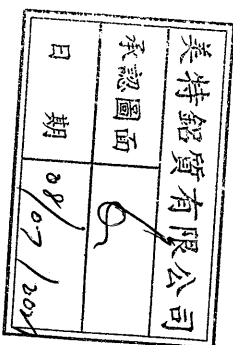 美特鋁質有限公司
承認圖面
日期 08/07/202